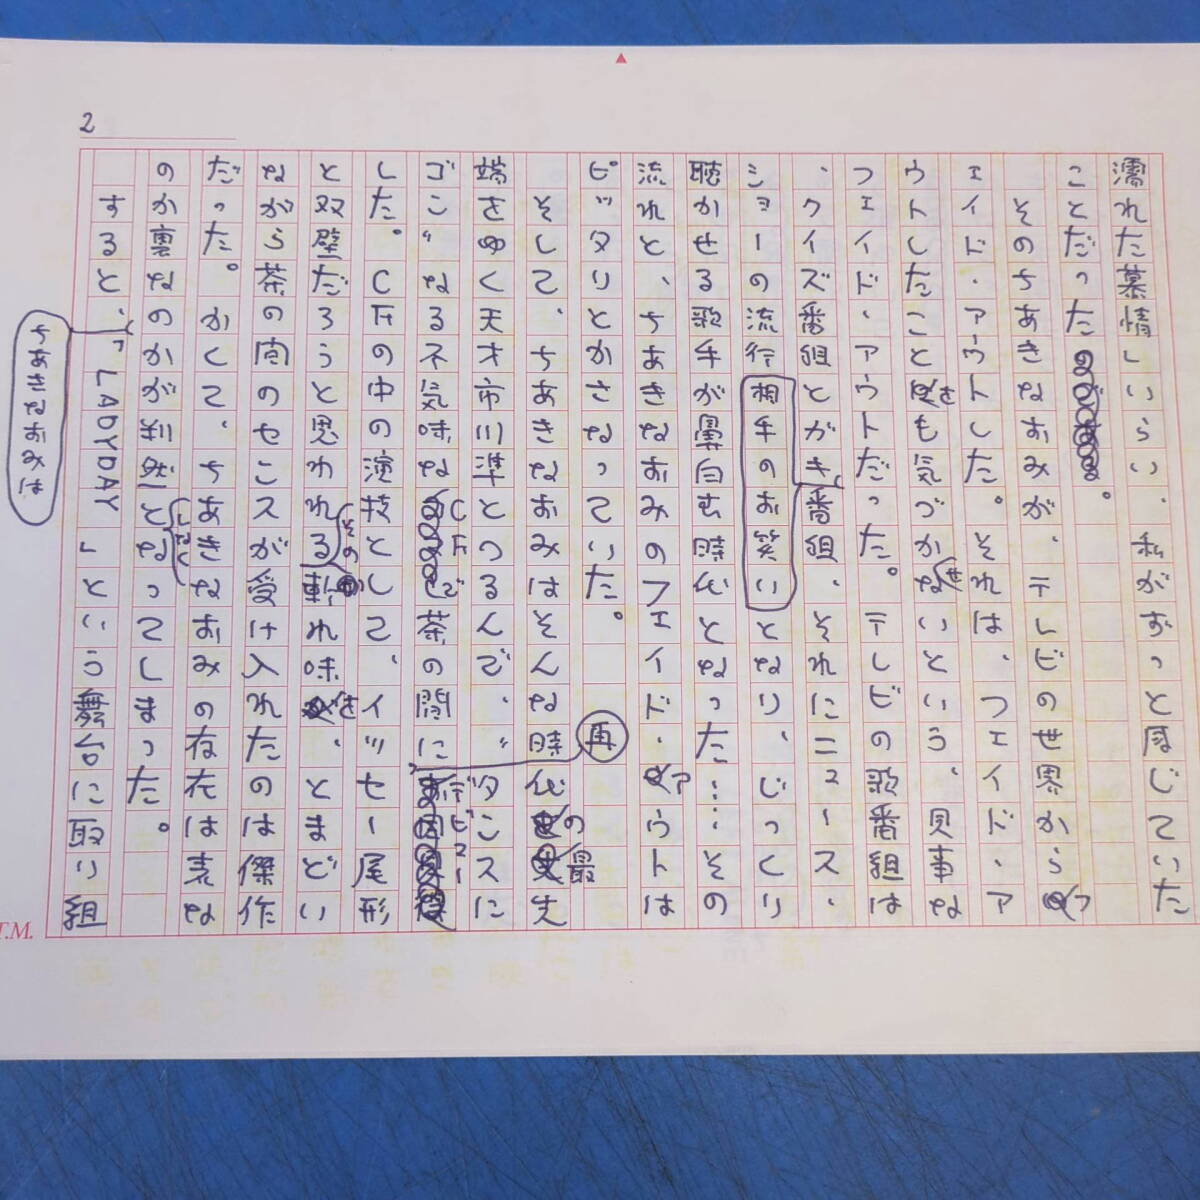 2
濡れた慕情しいらい、私がずっと感じていた
ことだった。
そのちあきなおみが、テレビの世界からフ
ェイド・アウトした。それは、フェイド・ア
ウトしたことをも気づかせないという、見事な
フェイド・アウトだった。テレビの歌番組は
、クイズ番組とかガキ相手のお笑い番組、それにニュース・
ショーの流行となり、じっくり
聴かせる歌手が鼻白む時代となった……その
流れと、ちあきなおみのフェイド・アウトは
ピッタリとかさなっていた。
そして、ちあきなおみはそんな時代の最先
端をゆく天才市川準とつるんで、〝タンスに
ゴン〟なる不気味なCFで茶の間に再デビュー
した。CFの中の演技として、イッセー尾形
と双璧だろうと思われるその斬れ味を、とまどい
ながら茶の間のセンスが受け入れたのは傑作
だった。かくて、ちあきなおみの存在は表な
のか裏なのかが判然としなくなってしまった。
すると、ちあきなおみは「LADYDAY」という舞台に取り組
T.M.